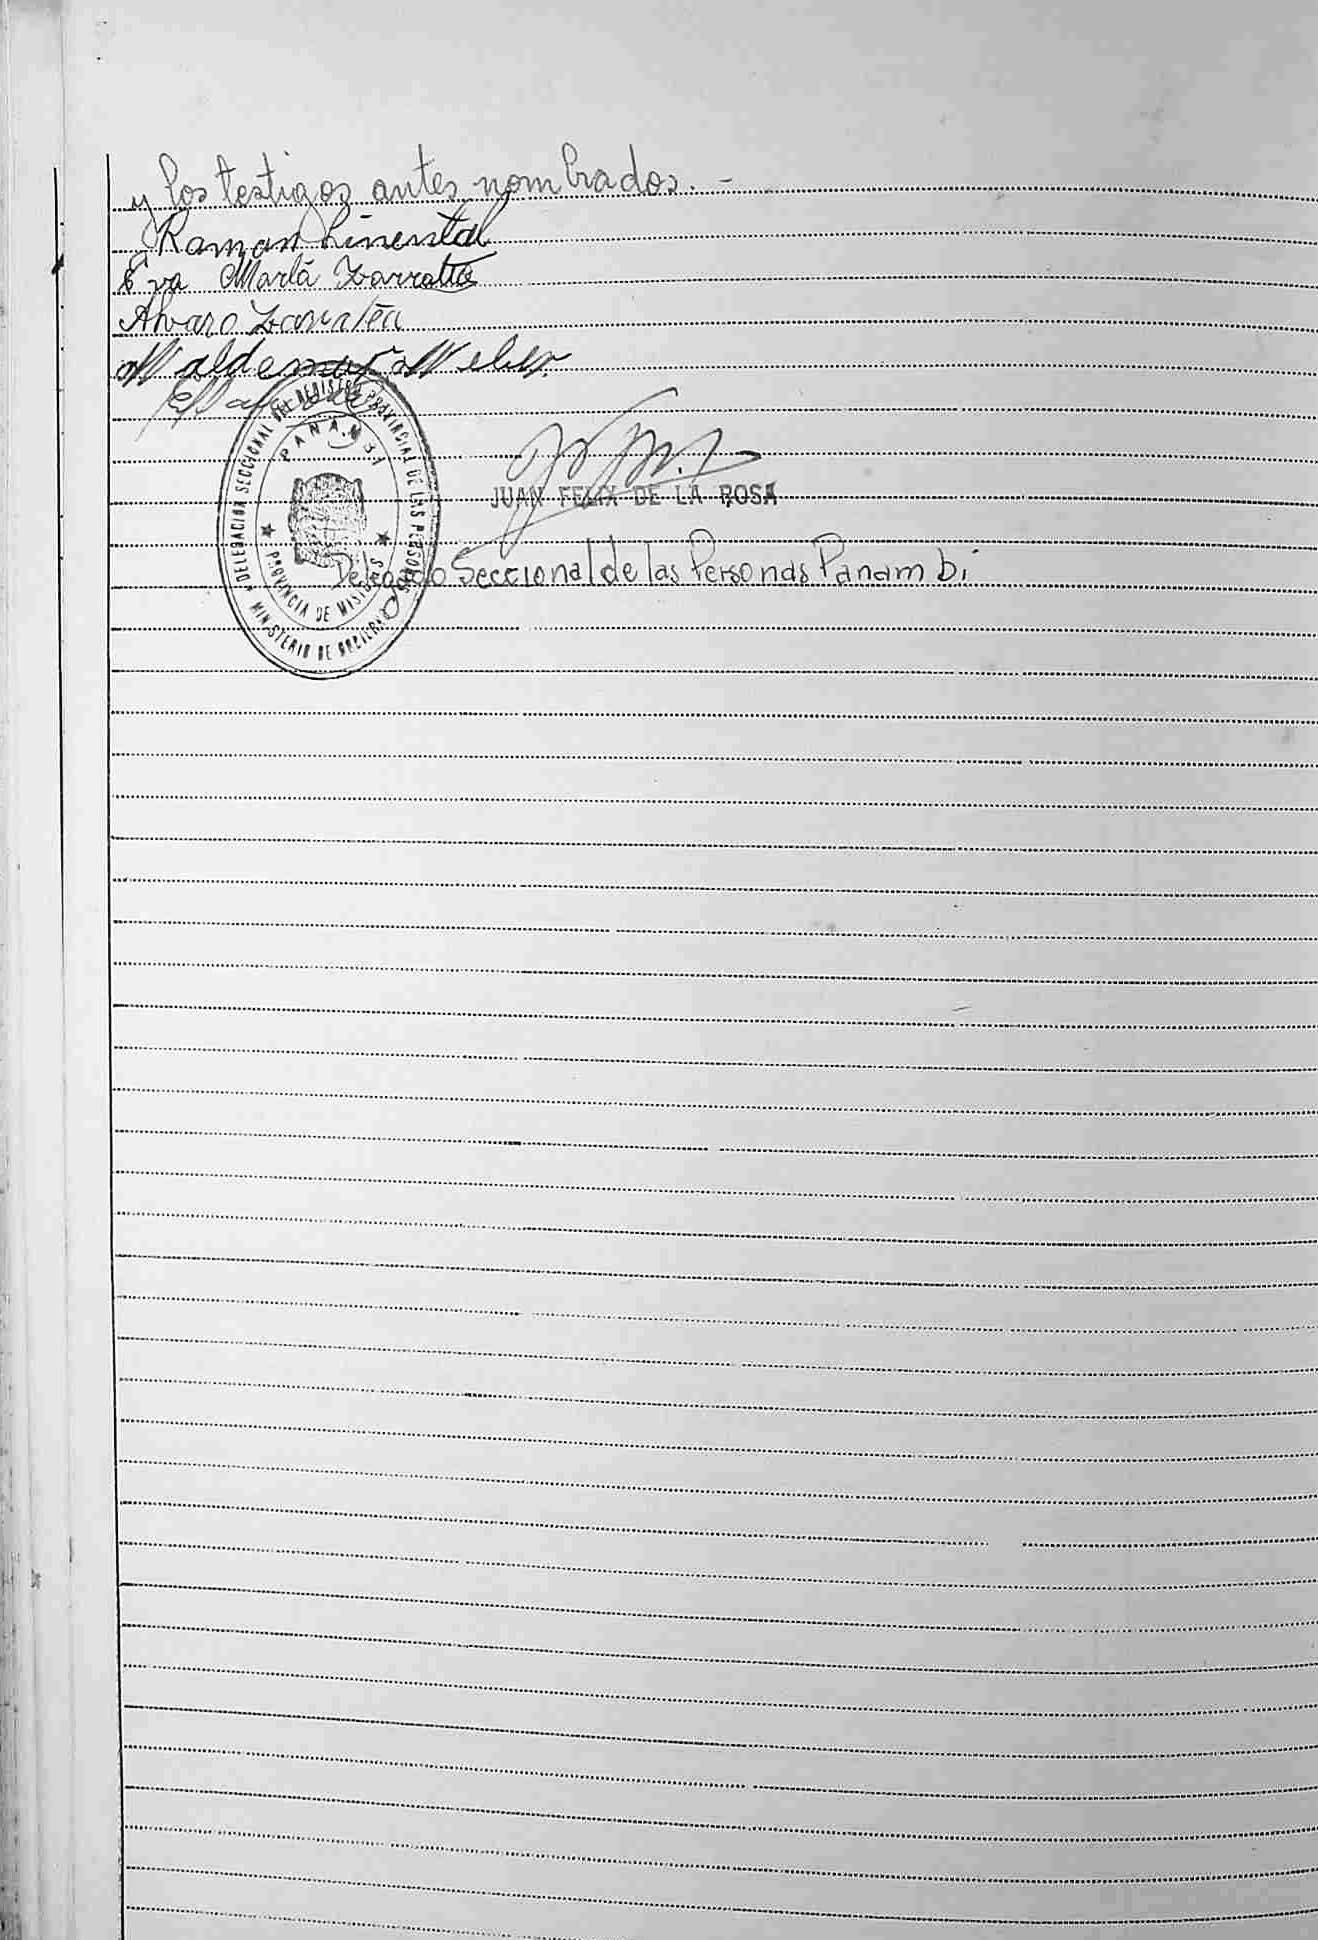 y los testigos antes nombrados. -
Ramon Linental
Eva Marlà Zarratéa
Alvaro Zarratéa
Waldemar Weber.
DELEGACIÓN SECCIONAL DEL REGISTRO PROVINCIAL DE LAS PERSONAS
PANAMBI
PROVINCIA DE MISIONES
MINISTERIO DE
JUAN FELIX DE LA ROSA
Delegado Seccional de las Personas Panambi